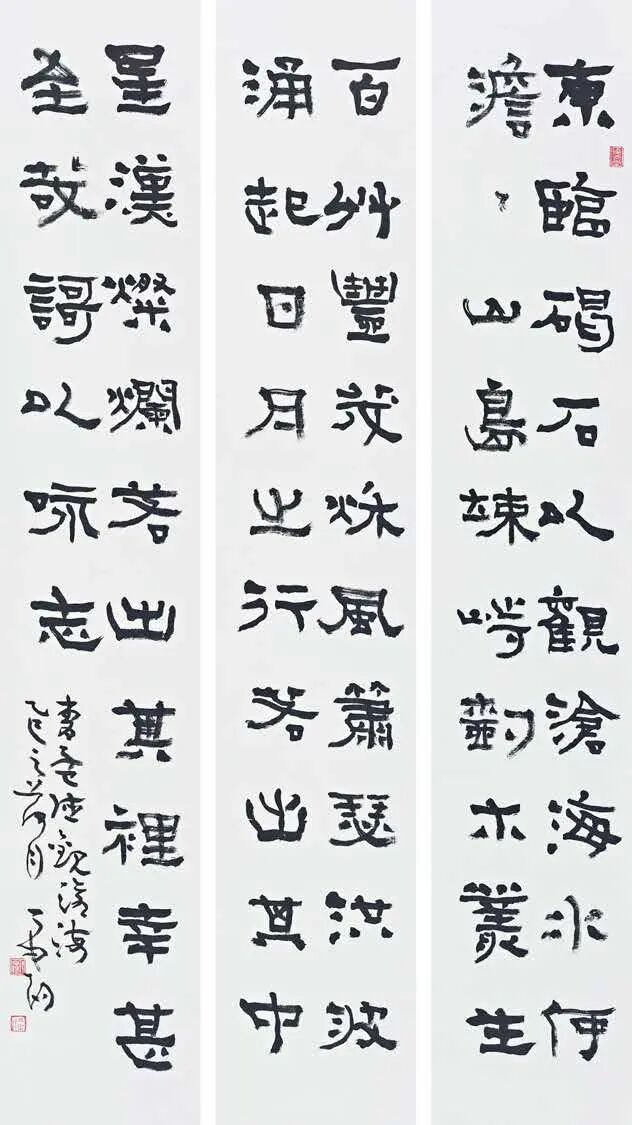 東臨碣石以觀滄海水何
澹〻山島竦峙尌木叢生
百艸豐茂秌風簫瑟洪波
涌起日月之行若出其中
星漢燦爛若出其裡幸甚
至哉謌以咏志
曹孟德觀滄海
乙巳之荷月